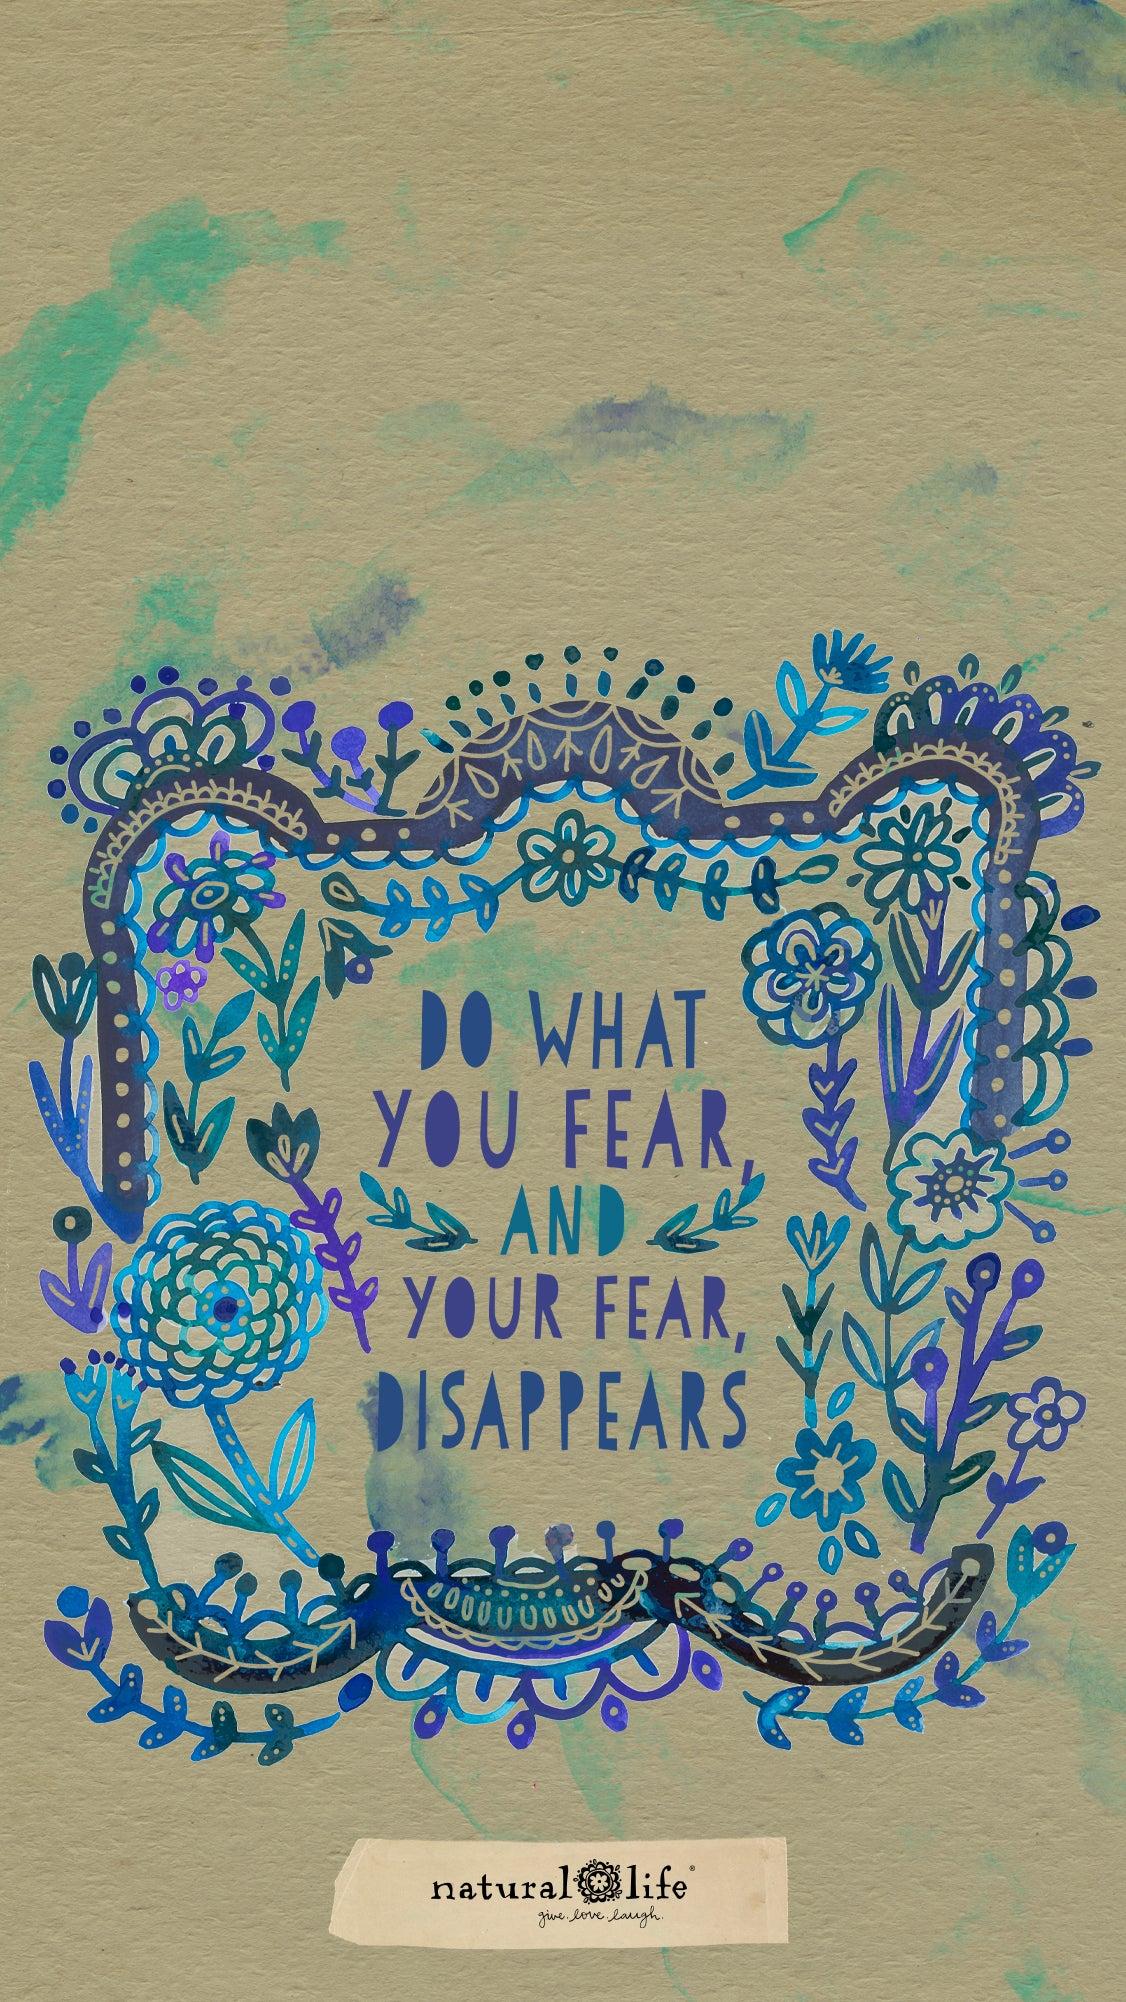 DO WHAT
YOU FEAR,
AND
YOUR FEAR,
DISAPPEARS
natural life®
give. love. laugh.